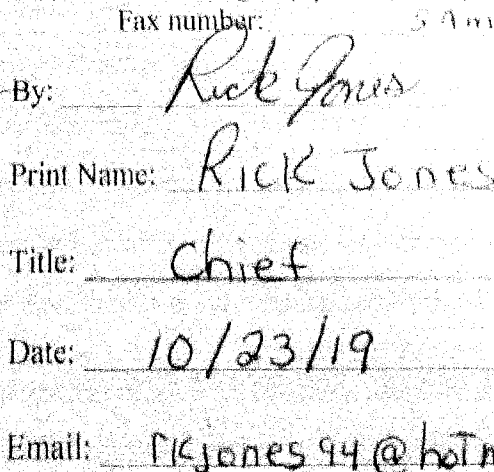 Fax number: Sam
By: Rick Jones
Print Name: Rick Jones
Title: Chief
Date: 10/23/19
Email: rkjones94@hotm